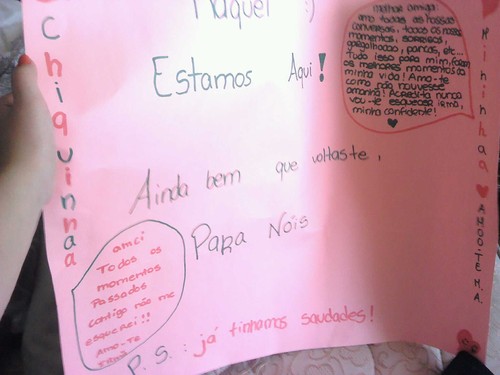 Raquel :)
Chiquinnaa
Estamos Aqui!
Melhor amiga:
amo todas as nossas
conversas, todos os nossos
momentos, sorrisos,
gargalhadas, parvas, etc...
Tudo isso para mim, foram
os melhores momentos da
minha vida! Amo-te
como não houvesse
amanhã! Acredita nunca
vou-te esquecer irmã,
minha confidente!
♥
Mininhaa ♥ AMOO-TE M.A.
Ainda bem que voltaste,
Para Nóis
amei
Todos os
momentos
Passados
contigo não me
esquerei!!
Amo-te
P.S.: já tinhamos saudades!